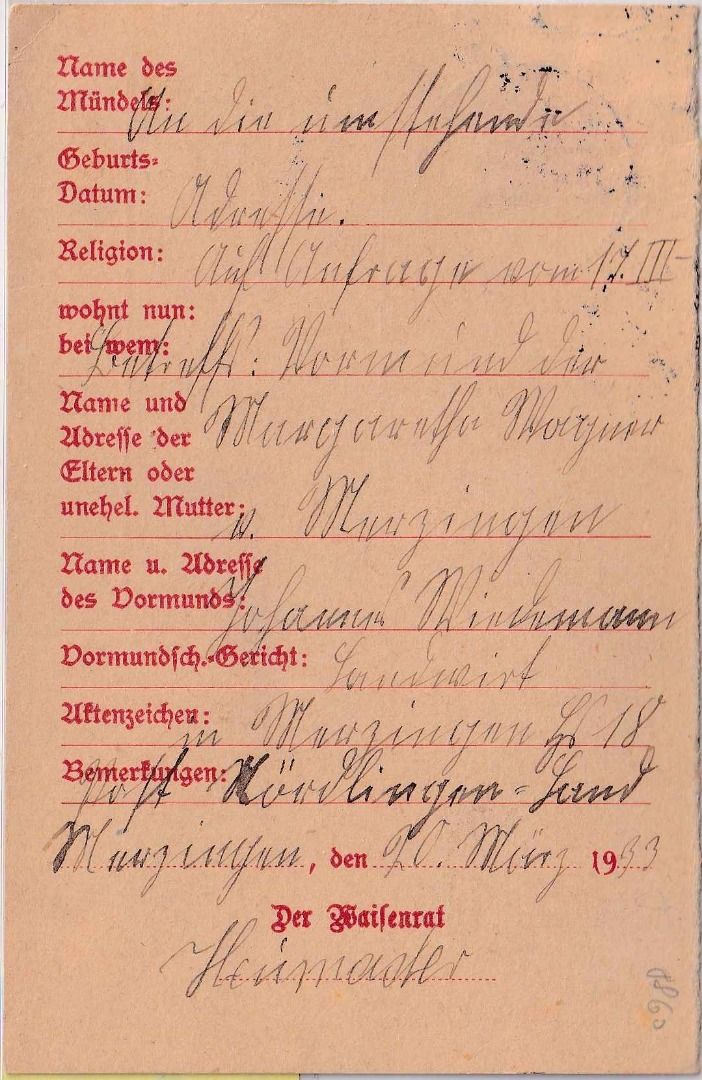 Name des
Mündels:
An die umstehende
Geburts-
Datum:
Adresse.
Religion:
Auf Anfrage vom 17. III
wohnt nun:
bei wem:
Betreff: Vormund der
Name und
Adresse der
Margaretha Wagner
Eltern oder
unehel. Mutter:
v. Merzingen
Name u. Adresse
des Vormunds:
Johannes Wiedemann
Vormundsch.-Gericht:
Landwirt
Aktenzeichen:
in Merzingen Hs 18
Bemerkungen:
Post Nördlingen-Land
Merzingen, den 20. März 1933
Der Waisenrat